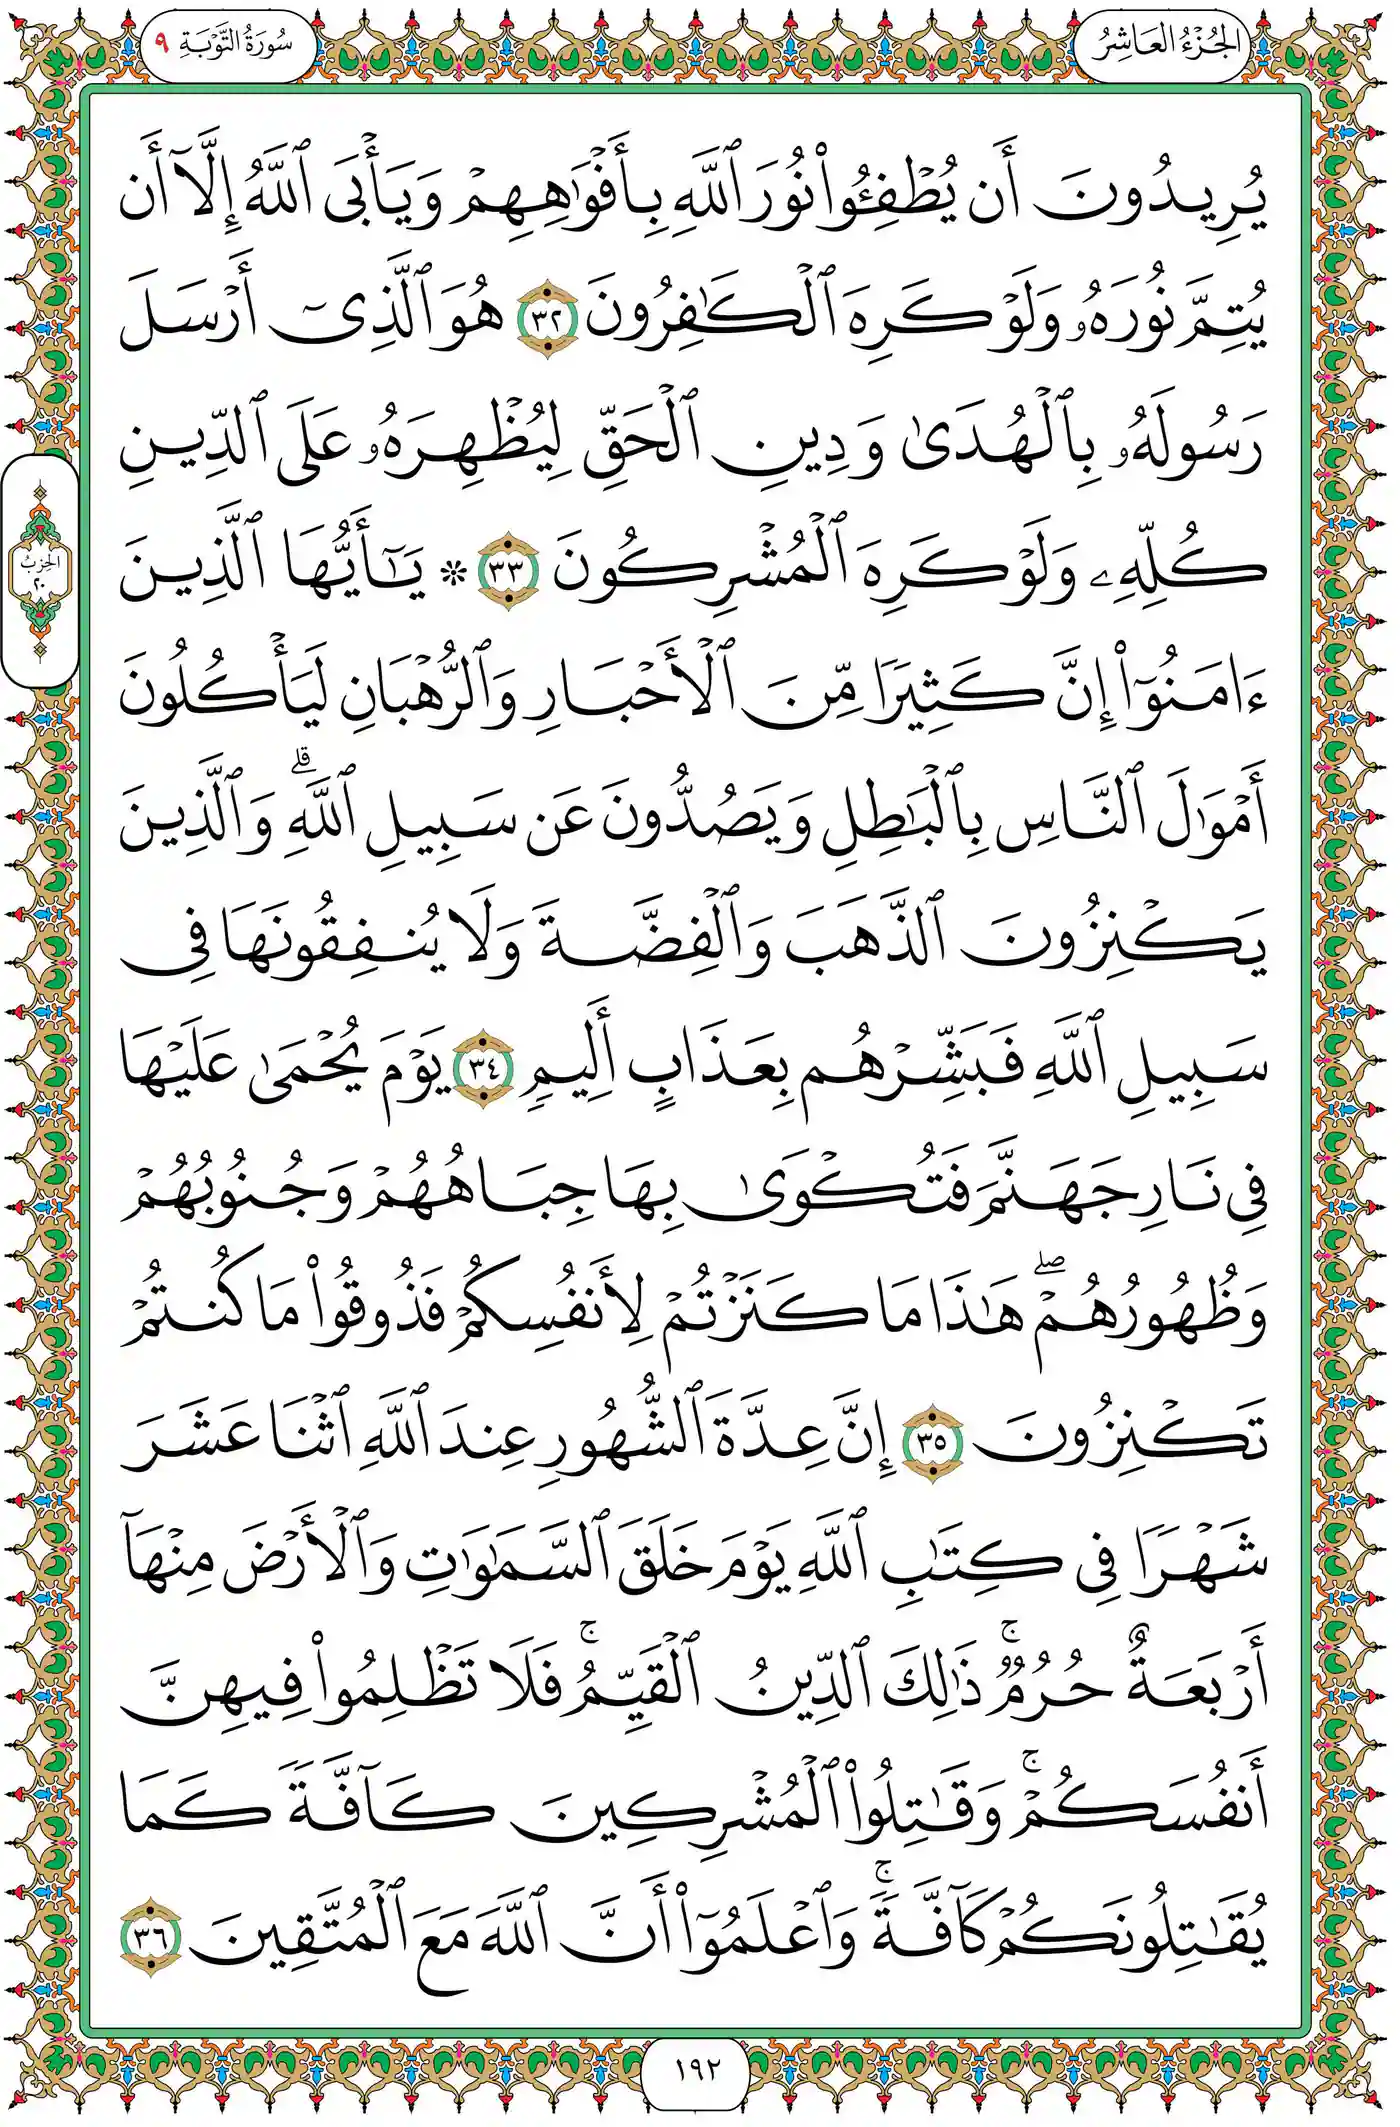 الجُزْءُ العَاشِرُ
سُورَةُ التَّوْبَةِ ٩
يُرِيدُونَ أَن يُطْفِـُٔوا۟ نُورَ ٱللَّهِ بِأَفْوَٰهِهِمْ وَيَأْبَى ٱللَّهُ إِلَّآ أَن
يُتِمَّ نُورَهُۥ وَلَوْ كَرِهَ ٱلْكَٰفِرُونَ ٣٢ هُوَ ٱلَّذِىٓ أَرْسَلَ
رَسُولَهُۥ بِٱلْهُدَىٰ وَدِينِ ٱلْحَقِّ لِيُظْهِرَهُۥ عَلَى ٱلدِّينِ
كُلِّهِۦ وَلَوْ كَرِهَ ٱلْمُشْرِكُونَ ٣٣ * يَٰٓأَيُّهَا ٱلَّذِينَ
الحِزْبُ
٢٠
ءَامَنُوٓا۟ إِنَّ كَثِيرًا مِّنَ ٱلْأَحْبَارِ وَٱلرُّهْبَانِ لَيَأْكُلُونَ
أَمْوَٰلَ ٱلنَّاسِ بِٱلْبَٰطِلِ وَيَصُدُّونَ عَن سَبِيلِ ٱللَّهِ ۗ وَٱلَّذِينَ
يَكْنِزُونَ ٱلذَّهَبَ وَٱلْفِضَّةَ وَلَا يُنفِقُونَهَا فِى
سَبِيلِ ٱللَّهِ فَبَشِّرْهُم بِعَذَابٍ أَلِيمٍ ٣٤ يَوْمَ يُحْمَىٰ عَلَيْهَا
فِى نَارِ جَهَنَّمَ فَتُكْوَىٰ بِهَا جِبَاهُهُمْ وَجُنُوبُهُمْ
وَظُهُورُهُمْ ۖ هَٰذَا مَا كَنَزْتُمْ لِأَنفُسِكُمْ فَذُوقُوا۟ مَا كُنتُمْ
تَكْنِزُونَ ٣٥ إِنَّ عِدَّةَ ٱلشُّهُورِ عِندَ ٱللَّهِ ٱثْنَا عَشَرَ
شَهْرًا فِى كِتَٰبِ ٱللَّهِ يَوْمَ خَلَقَ ٱلسَّمَٰوَٰتِ وَٱلْأَرْضَ مِنْهَآ
أَرْبَعَةٌ حُرُمٌ ۚ ذَٰلِكَ ٱلدِّينُ ٱلْقَيِّمُ ۚ فَلَا تَظْلِمُوا۟ فِيهِنَّ
أَنفُسَكُمْ ۚ وَقَٰتِلُوا۟ ٱلْمُشْرِكِينَ كَآفَّةً كَمَا
يُقَٰتِلُونَكُمْ كَآفَّةً ۚ وَٱعْلَمُوٓا۟ أَنَّ ٱللَّهَ مَعَ ٱلْمُتَّقِينَ ٣٦
١٩٢